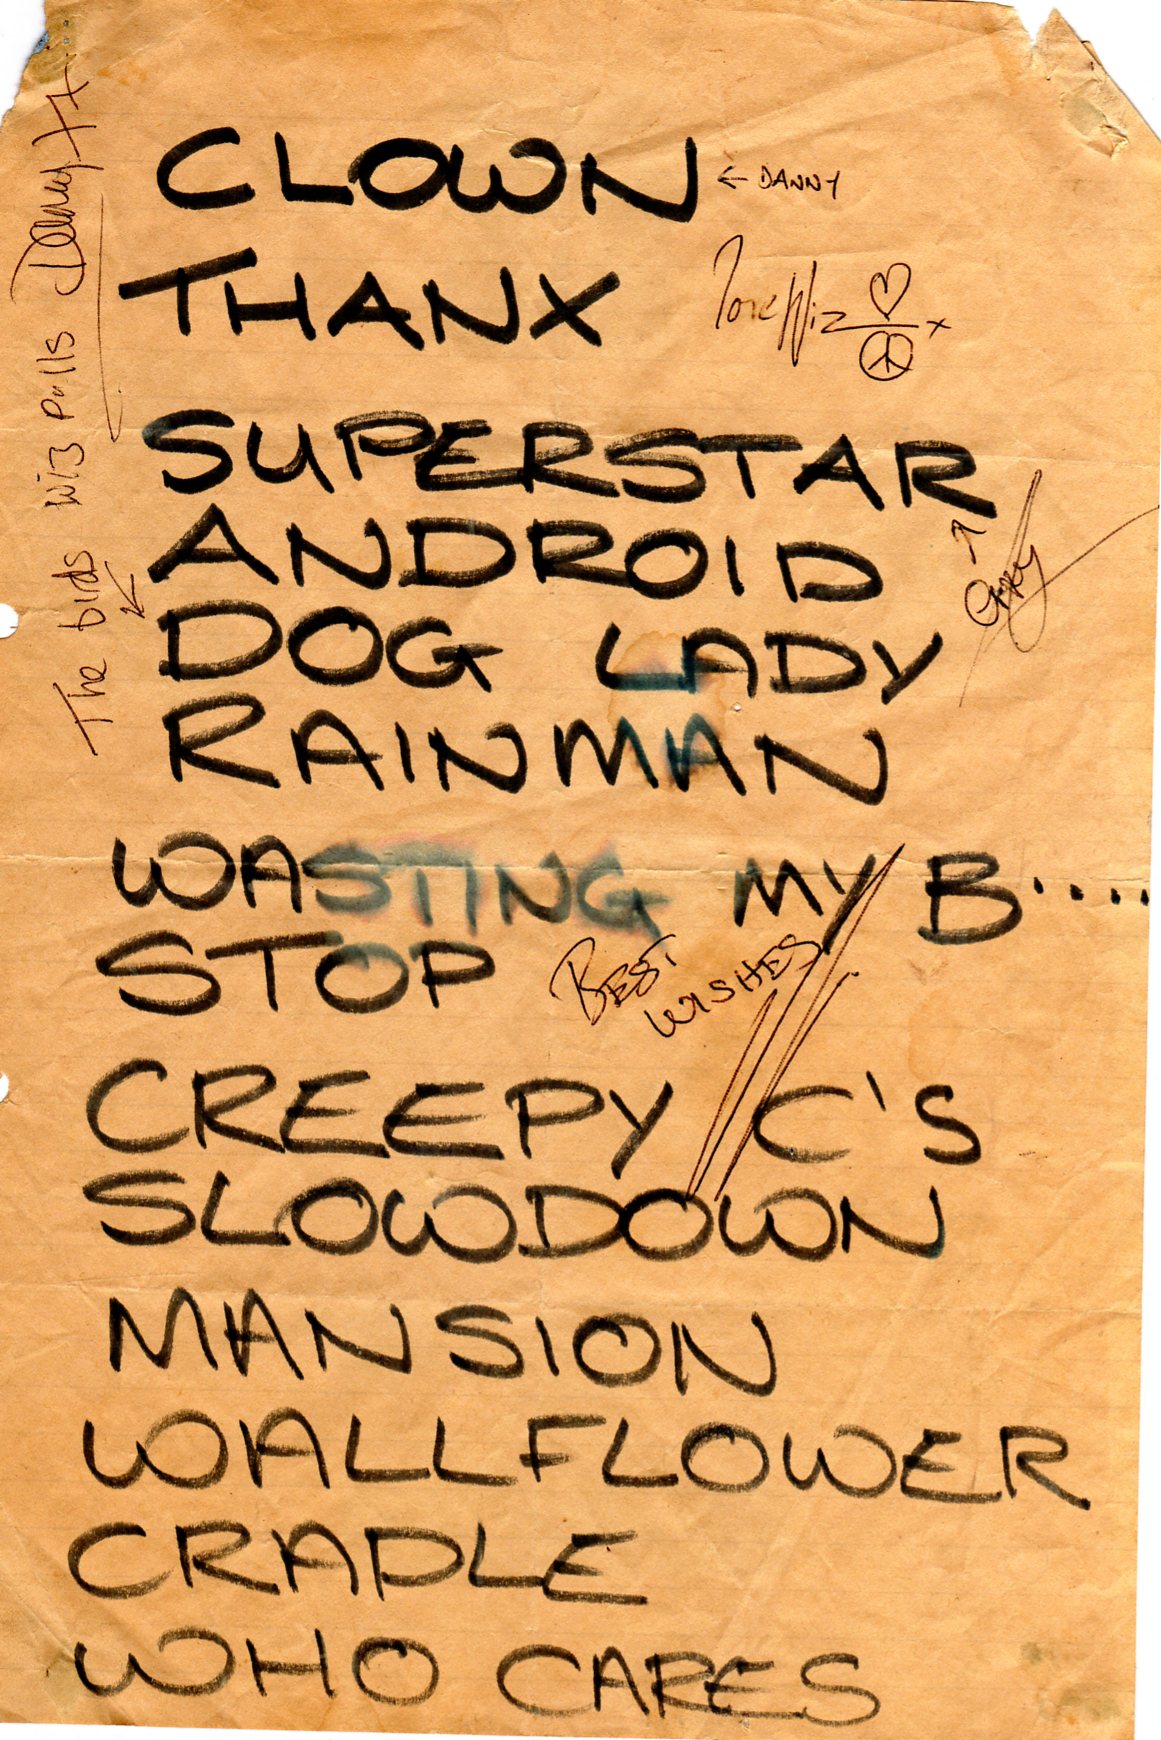 CLOWN ← DANNY
THANX
Love Wiz x
SUPERSTAR
ANDROID
DOG LADY
RAINMAN
WASTING MY B.....
STOP
BEST
WISHES
CREEPY C'S
SLOWDOWN
MANSION
WALLFLOWER
CRADLE
WHO CARES
The birds Wiz Pulls Danny xx